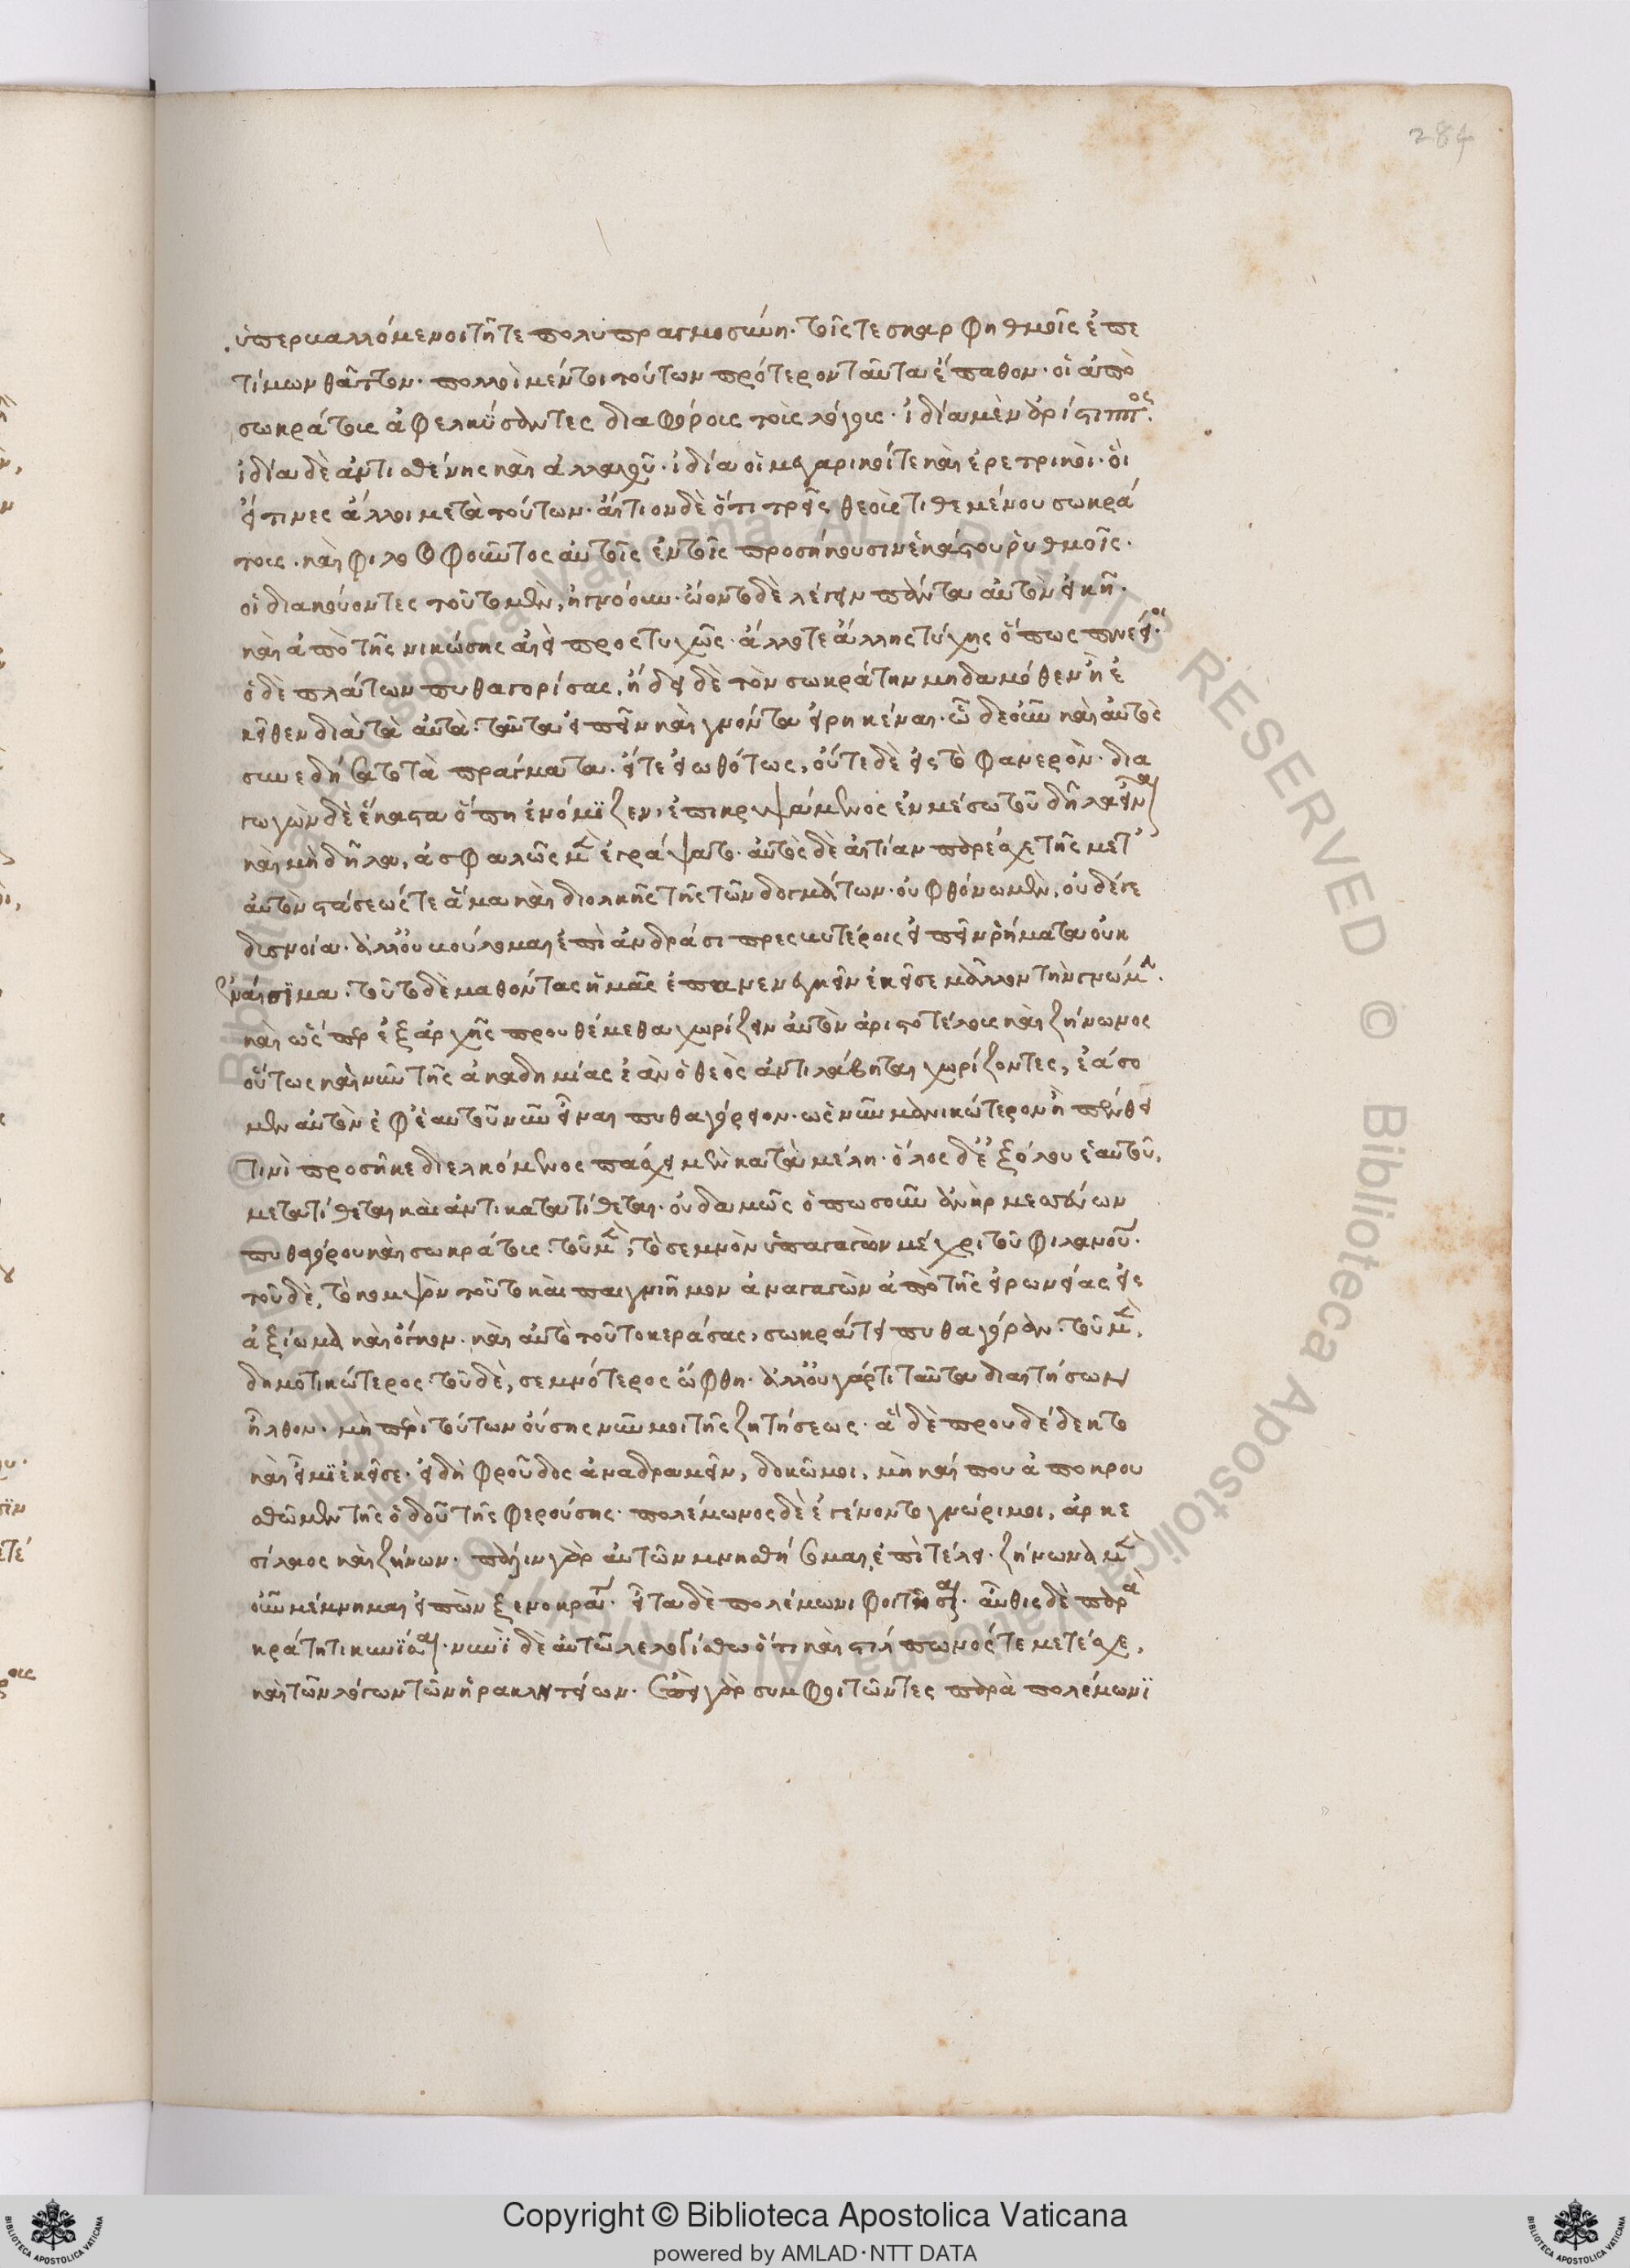 284
ὑπερβαλλόμενοι τῆ τε πολυπραγμοσύνη. τοῖς τε σκαρφηθμοῖς ἐπε
τίμων θᾶττον. πολλοὶ μέντοι τούτων πρότερον ταῦτα ἔπαθον. οἱ ἀπὸ
σωκράτους ἀφελκύσαντες διαφόροις τοῖς λόγοις. ἰδία μὲν ἀρίστιππος.
ἰδία δὲ ἀντισθένης καὶ ἀλλαχοῦ. ἰδία οἱ μεγαρικοί τε καὶ ἐρετρικοὶ. ἢ
εἴ τινες ἄλλοι μετὰ τούτων. αἴτιον δὲ ὅτι τρεῖς θεοὺς τιθεμένου σωκρά
τους. καὶ φιλοσοφοῦντος αὐτοῖς ἐν τοῖς προσήκουσιν ἑκάστου ῥυθμοῖς.
οἱ διακούοντες τοῦτο μὲν, ἠγνόουν. ὤοντο δὲ λέγειν πάντα αὐτὸν εἰκῆ.
καὶ ἀπὸ τῆς νικώσης αἰεὶ προστυχῶς. ἄλλοτε ἄλλης τύχης ὅπως πνέοι.
ὁ δὲ πλάτων πυθαγορίσας, ἤδει δὲ τὸν σωκράτην μηδαμόθεν ἢ ἐ
κεῖθεν διὰ τὰ αὐτὰ. ταῦτα εἰπεῖν καὶ γνόντα εἰρηκέναι. ὧδε οὖν καὶ αὐτὸς
συνεδήσατο τὰ πράγματα. οὔτε εἰωθότως, οὔτε δὲ εἰς τὸ φανερὸν. δια
γαγὼν δὲ ἕκαστα ὅπη ἐνόμιζεν, ἐπικρυψάμενος ἐν μέσω τοῦ δῆλα εἶναι
καὶ μὴ δῆλα, ἀσφαλῶς μὲν ἐγράψατο. αὐτὸς δὲ αἰτίαν παρέσχε τῆς μετ'
αὐτὸν στάσεώς τε ἅμα καὶ διολκῆς τῆς τῶν δογμάτων. οὐ φθόνω μὲν, οὐδέ γε
δυσνοία. ἀλλ' οὐ βούλομαι ἐπὶ ἀνδράσι πρεσβυτέροις εἰπεῖν ῥήματα οὐκ
ἐναίσιμα. τοῦτο δὲ μαθόντας ἡμᾶς ἐπανενεγκεῖν ἐκεῖσε μᾶλλον τὴν γνώμην.
καὶ ὥσπερ ἐξ ἀρχῆς προυθέμεθα χωρίζειν αὐτὸν ἀριστοτέλους καὶ ζήνωνος
οὕτως καὶ νῦν τῆς ἀκαδημίας ἐὰν ὁ θεὸς ἀντιλάβηται χωρίζοντες, ἐάσο
μεν αὐτὸν ἐφ' ἑαυτοῦ νῦν εἶναι πυθαγόρειον. ὡς νῦν μανικώτερον ἢ πενθεῖ
τινὶ προσῆκε διελκόμενος πάσχει μὲν κατὰ μέλη. ὅλος δ' ἐξ ὅλου ἑαυτοῦ,
μετατίθεται καὶ ἀντικατατίθεται. οὐδαμῶς ὅπως οὖν ἀνὴρ μεσεύων
πυθαγόρου καὶ σωκράτους. τοῦ μὲν, τὸ σεμνὸν ὑπαγαγὼν μέχρι τοῦ φιλανου.
τοῦ δὲ, τὸ κομψὸν τοῦτο καὶ παιγνιῆμον ἀναγαγὼν ἀπὸ τῆς εἰρωνείας εἰς
ἀξίωμα καὶ ὄγκον. καὶ αὐτὸ τοῦτο κεράσας, σωκράτει πυθαγόραν. τοῦ μὲν,
δημοτικώτερος. τοῦ δὲ, σεμνότερος ὤφθη. ἀλλ' οὐ γάρ τι ταῦτα διαιτήσων
ἦλθον. μὴ περὶ τούτων οὔσης νῦν μοι τῆς ζητήσεως. ἃ δὲ προυδέδεκτο
καὶ εἶμι ἐκεῖσε. εἰ δὴ φροῦδος ἀναδραμεῖν, δοκῶ μοι, μὴ καί που ἀποκρου
σθῶμεν τῆς ὁδοῦ τῆς φερούσης. πολέμωνος δὲ ἐγένοντο γνώριμοι, ἀρκε
σίλαος καὶ ζήνων. πάλιν γὰρ αὐτῶν μνησθήσομαι ἐπὶ τέλει. ζήνωνα μὲν
οὖν μέμνημαι εἰπὼν ξενοκράτει. εἶτα δὲ πολέμωνι φοιτῆσαι. αὖθις δὲ παρὰ
κράτητι κυνίσαι. νυνὶ δὲ αὐτῶ λελογίσθω ὅτι καὶ στίλπωνός τε μετέσχε,
καὶ τῶν λόγων τῶν ἡρακλειτείων. ἐπεὶ γὰρ συμφοιτῶντες παρὰ πολέμωνι
Copyright © Biblioteca Apostolica Vaticana
powered by AMLAD·NTT DATA